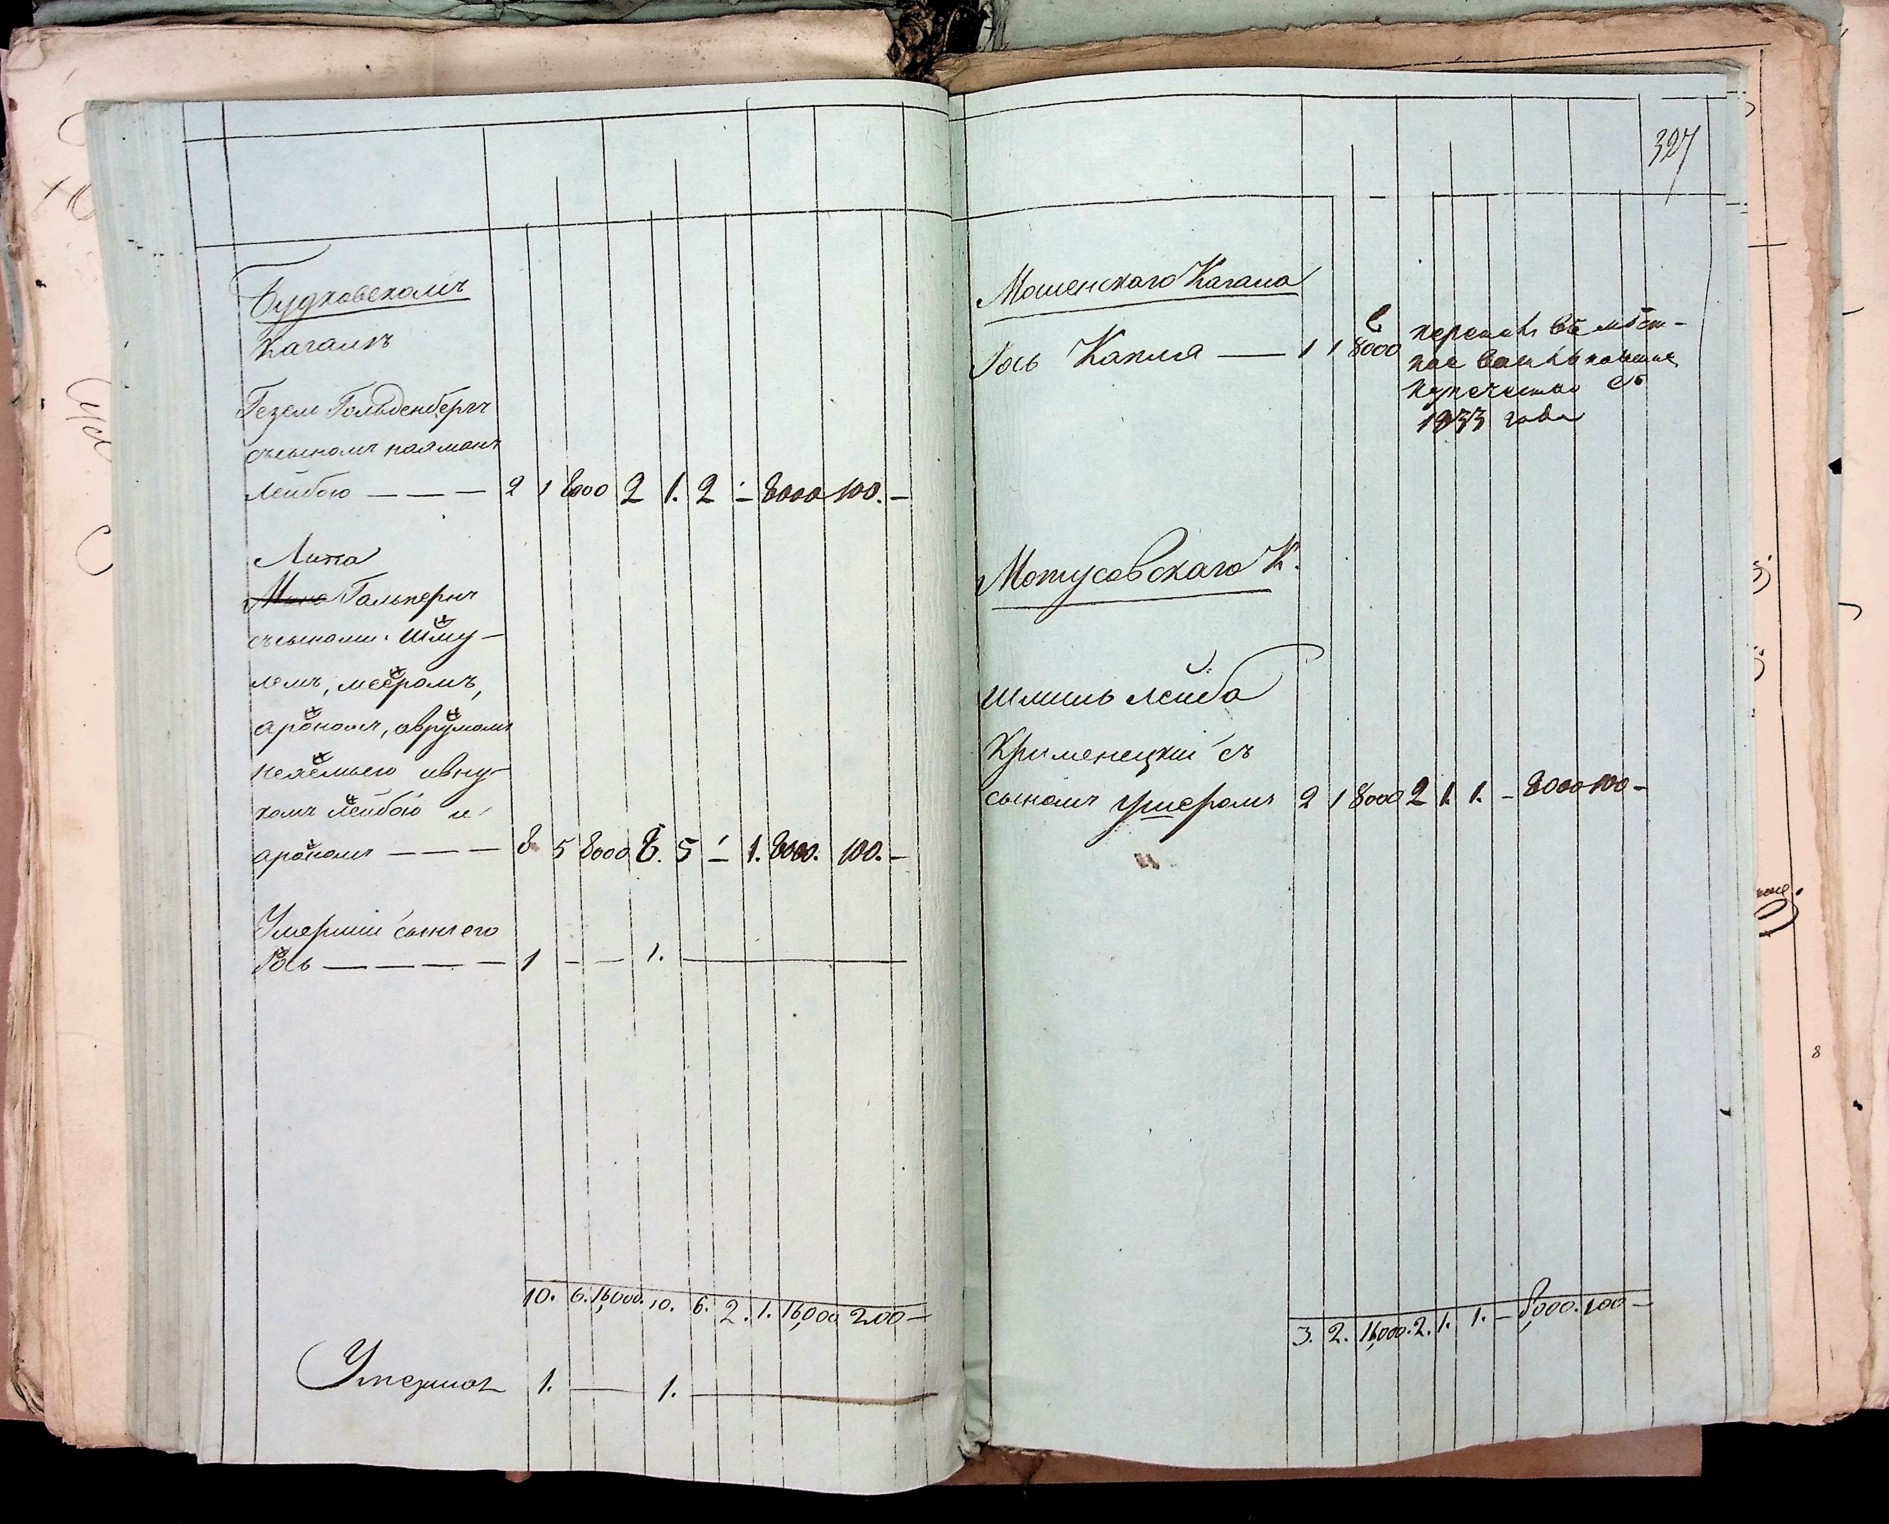 Будковскомъ
Кагалѣ
Гезел Гольденбергъ
съсыномъ нахманъ
Лейбою — — — 2 1 8000 2 1. 2 — 8000 100. —
Липа
Гальпернъ
съсынами: Шму-
лемъ, меэромъ,
арономъ, аврумомъ
ивну-
комъ Лейбою и
арономъ — — — 8 5 8000 8. 5 — 1. 8000. 100. —
Умершій сынъ его
Іось — — — — — 1 — — 1.
10. 6. 16,000. 10. 6. 2. 1. 16,000 200 —
Умершаго 1. — 1.
327
Мошенскаго Кагала
Іось Капля — 1 1 8000
въ мѣст-
купечество съ
1833 года
Мотусовскаго К.
Шлиль Лейба
Крименецкій съ
сыномъ Ушеромъ 2 1 8000 2 1. 1. — 8000 100 —
3. 2. 16,000. 2. 1. 1. — 8,000. 100 —